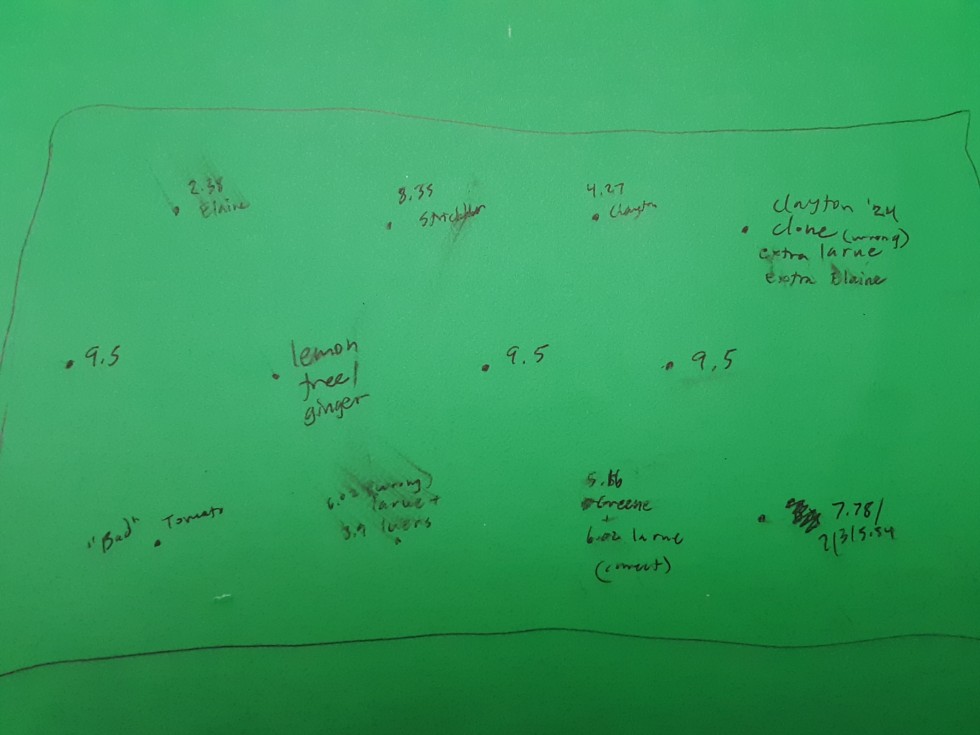 2.38
Elaine
8.35
4.27
Clayton
Clayton '24
clone (wrong)
extra larue
extra Elaine
9.5
lemon
tree/
ginger
9.5
9.5
"Bad" Tomato
6.02 (wrong)
larue +
3.9
5.66
Greene
+
6.02 larue
(correct)
7.78/
2/3/5.54